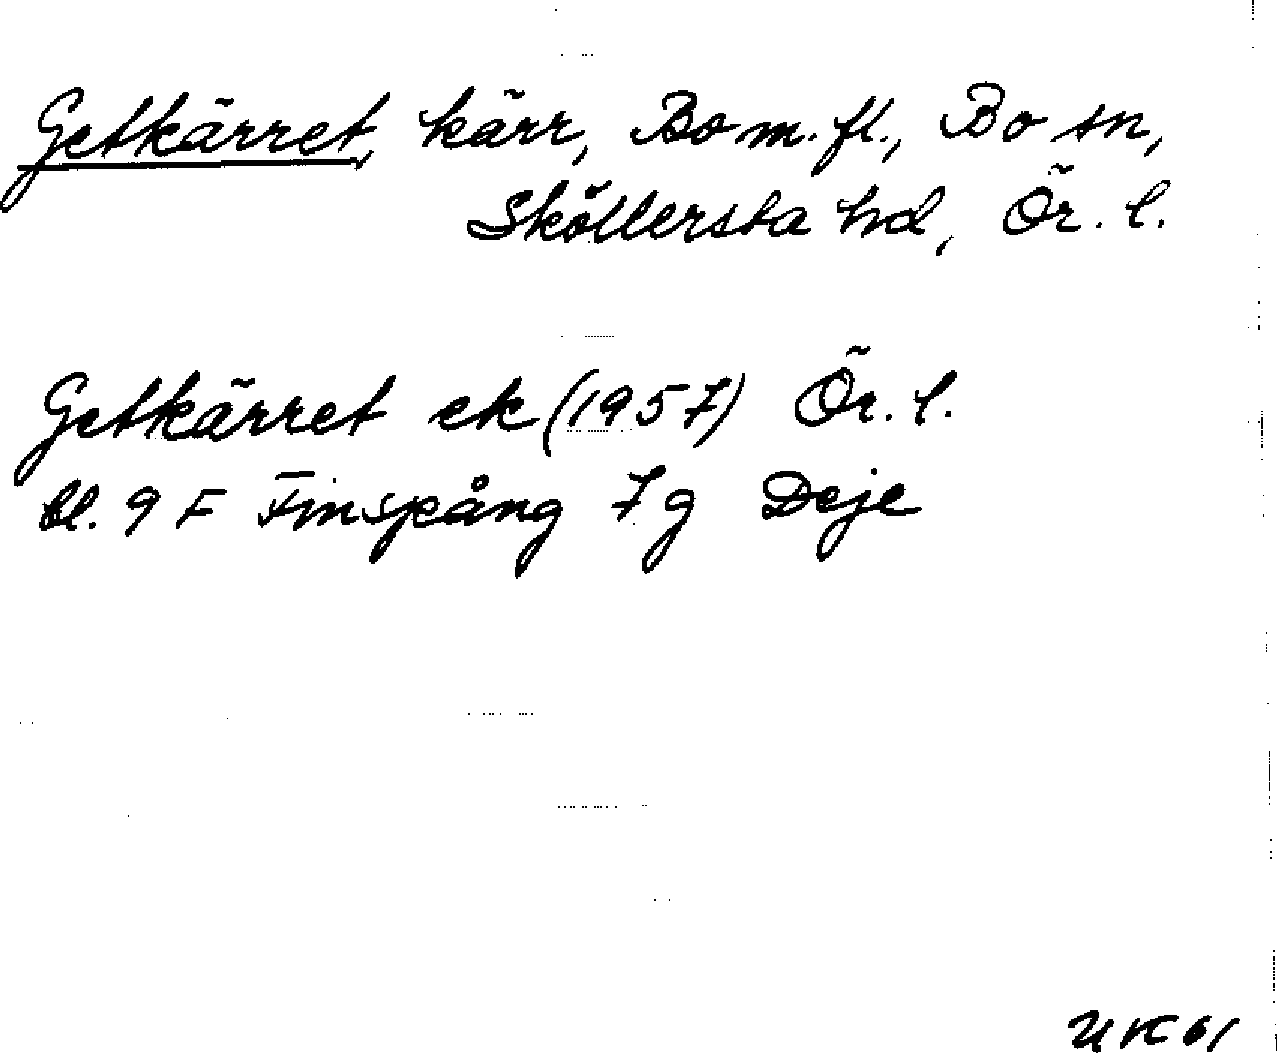 Getkärret, kärr, Bo m. fl., Bo sn,
Sköllersta hd, Ör. l.
Getkärret ek (1957) Ör. l.
bl. 9 F Finspång 7 g Deje
UK 61